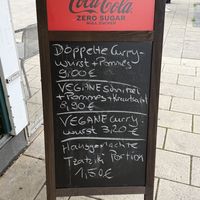 Coca-Cola
ZERO SUGAR
NULL ZUCKER
DOPPELTE CURRY-
WURST + Pommes
9,00 €
VEGANE Schnitzel
+ Pommes + Krautsalat
8,90 €
VEGANE Curry-
wurst 3,20 €
Hausgemachte
Tzatziki Portion
1,50 €